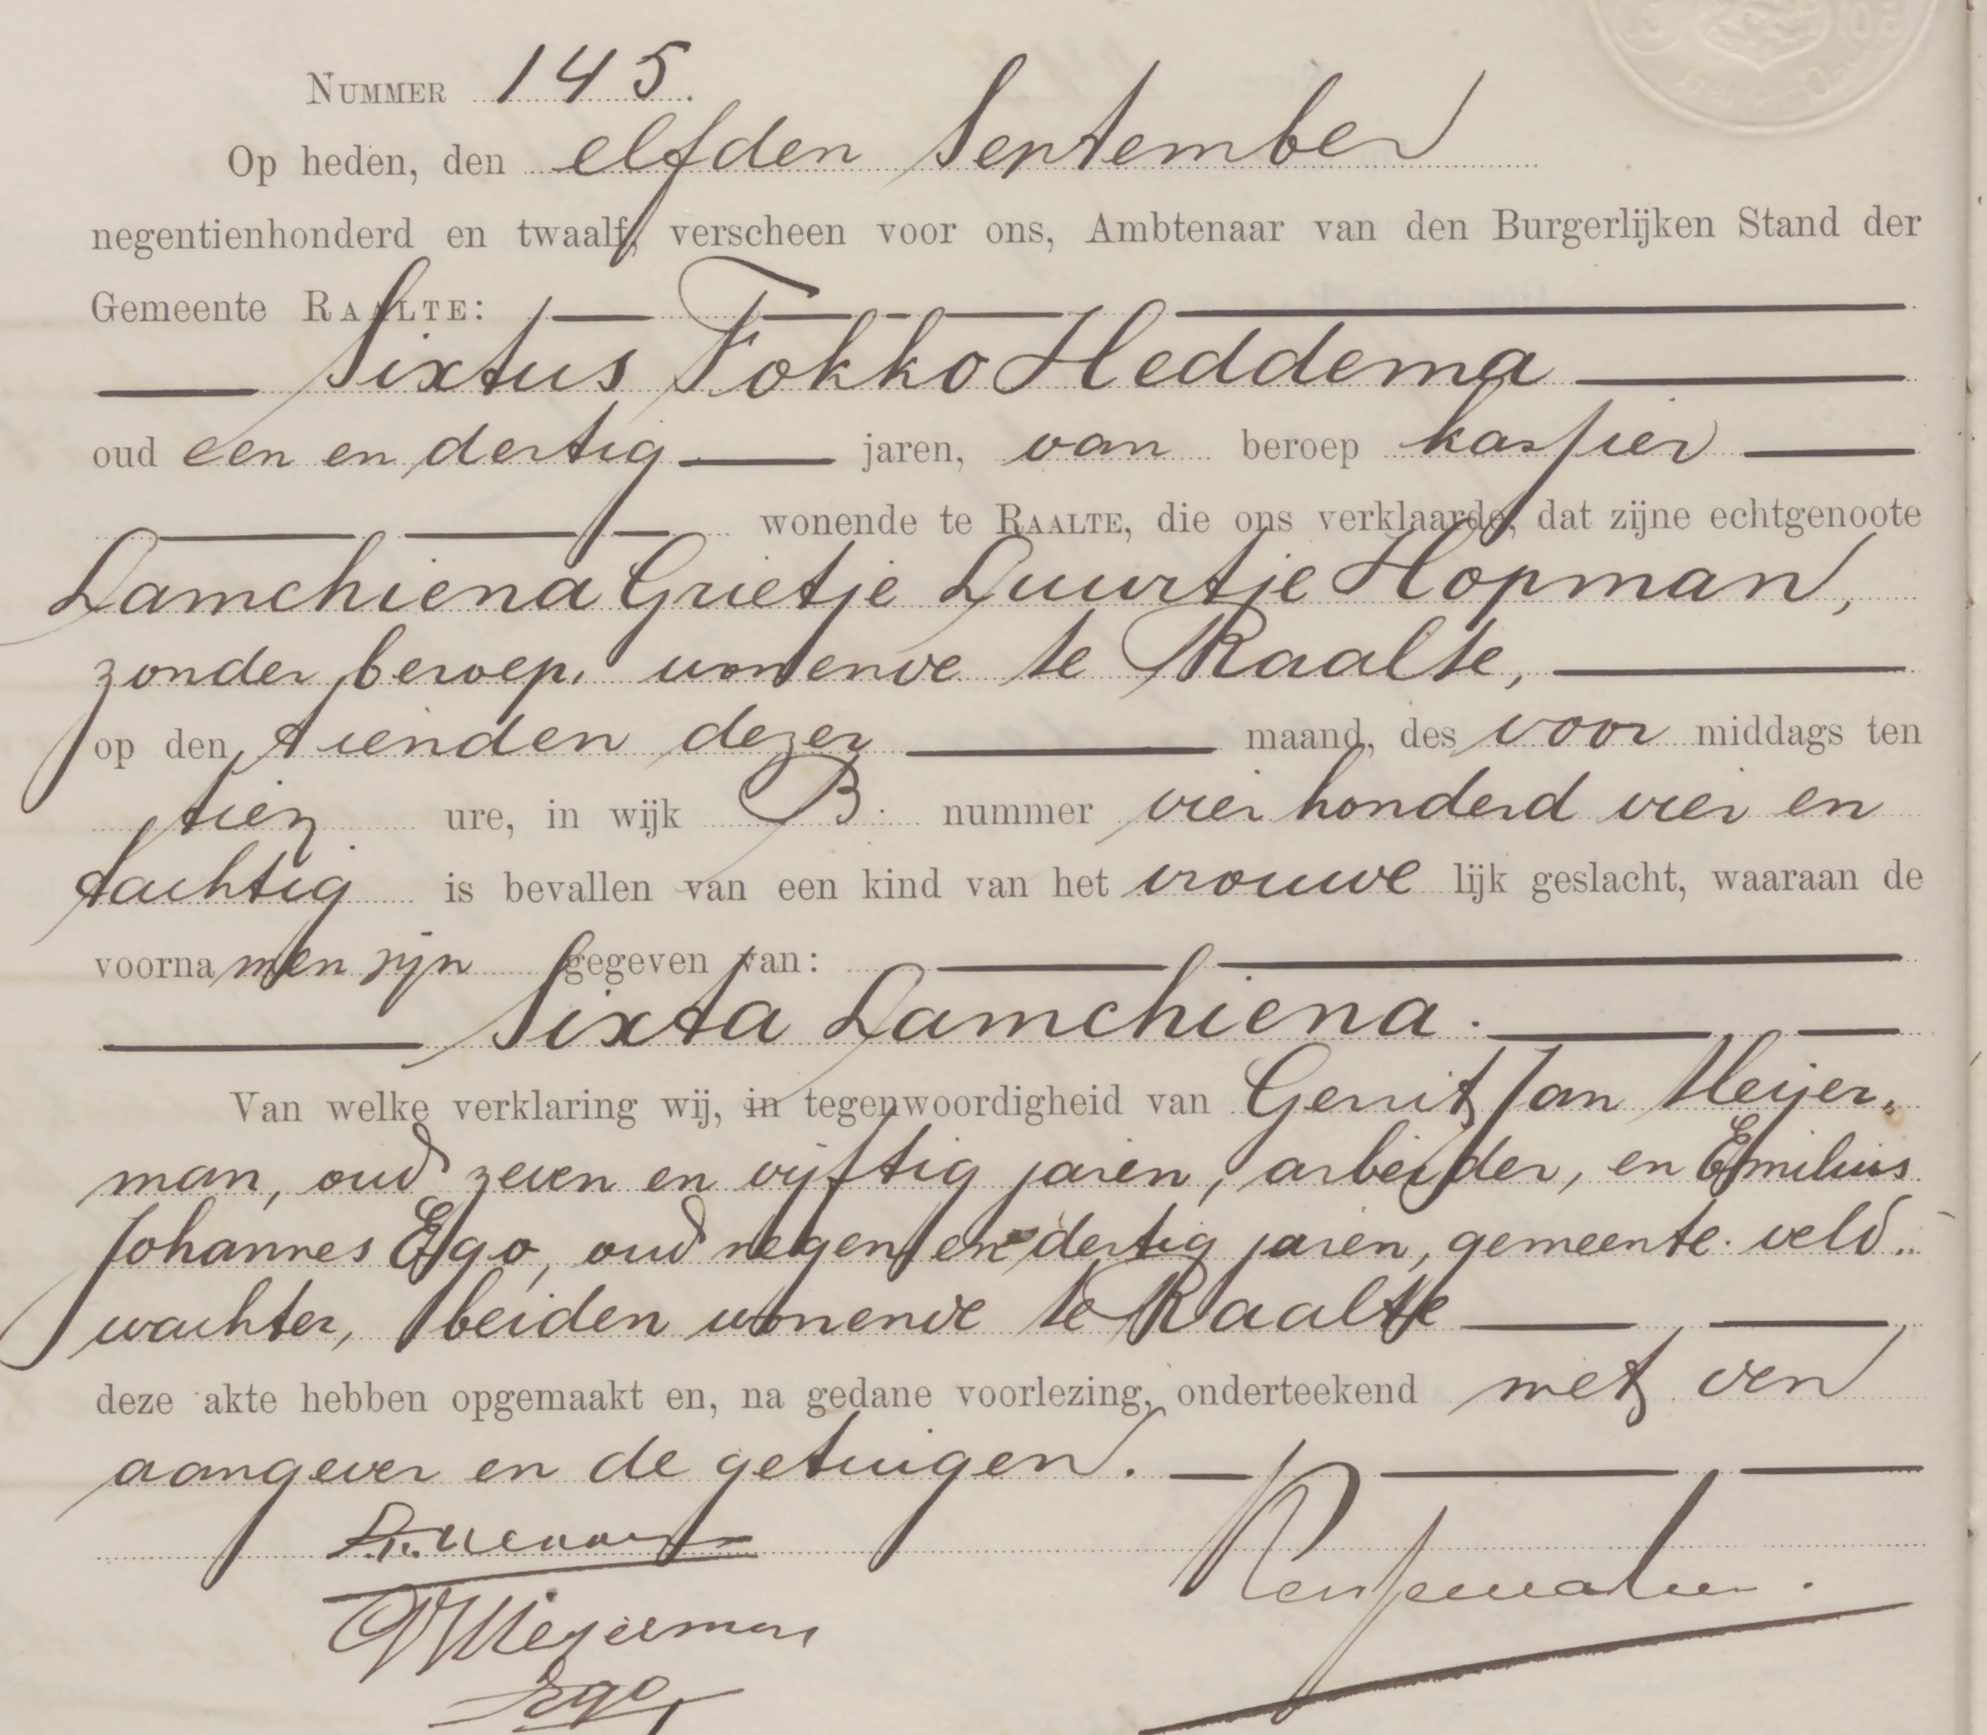 NUMMER 145.
Op heden, den elfden September
negentienhonderd en twaalf, verscheen voor ons, Ambtenaar van den Burgerlijken Stand der
Gemeente RAALTE:
Sixtus Fokko Heddema
oud een en dertig jaren, van beroep kassier
wonende te RAALTE, die ons verklaarde, dat zijne echtgenoote
Lamchiena Grietje Luurtje Hopman,
zonder beroep, wonende te Raalte,
op den tienden dezer maand, des voor middags ten
tien ure, in wijk B. nummer vier honderd vier en
tachtig is bevallen van een kind van het vrouwe lijk geslacht, waaraan de
voorna men zijn gegeven van:
Sixta Lamchiena.
Van welke verklaring wij, in tegenwoordigheid van Gerrit Jan Meijer-
man, oud zeven en vijftig jaren, arbeider, en Emilius
Johannes Ego, oud negen en dertig jaren, gemeente-veld-
wachter, beiden wonende te Raalte
deze akte hebben opgemaakt en, na gedane voorlezing, onderteekend met den
aangever en de getuigen.
GJ Meijerman
Ego